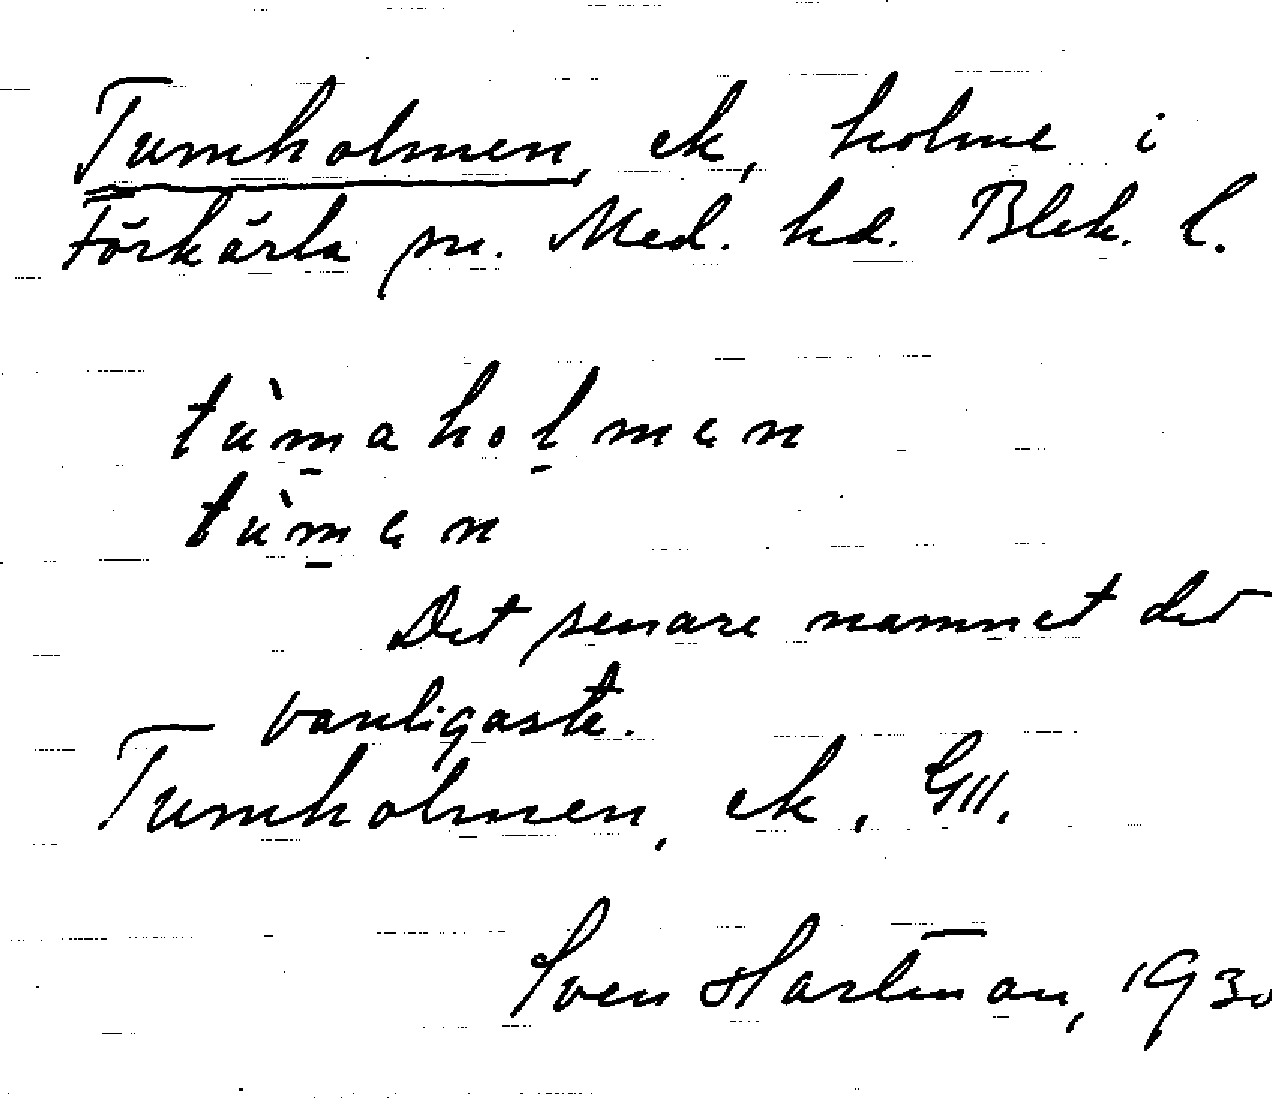 Tumholmen, ek, holme i
Förkärla sn. Med. hd. Blek. l.
tùmaholmen
tùmen
Det senare namnet det
vanligaste.
Tumholmen, ek, GII.
Sven Hartman, 1930